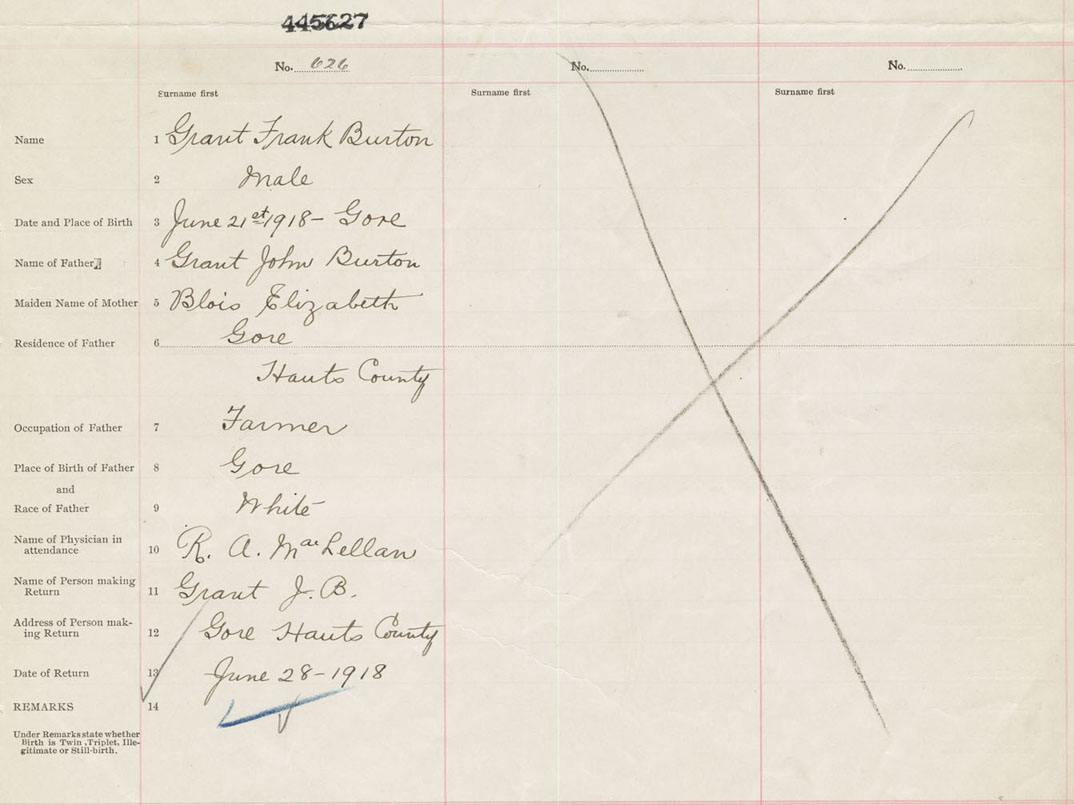 445627
No. 626 No. No.
Surname first Surname first Surname first
Name 1 Grant Frank Burton
Sex 2 Male
Date and Place of Birth 3 June 21st 1918 - Gore
Name of Father 4 Grant John Burton
Maiden Name of Mother 5 Blois Elizabeth
Residence of Father 6 Gore
Hants County
Occupation of Father 7 Farmer
Place of Birth of Father 8 Gore
and
Race of Father 9 White
Name of Physician in
attendance 10 R. A. MacLellan
Name of Person making
Return 11 Grant J. B.
Address of Person mak-
ing Return 12 Gore Hants County
Date of Return 13 June 28 - 1918
REMARKS 14
Under Remarks state whether
Birth is Twin, Triplet, Ille-
gitimate or Still-birth.